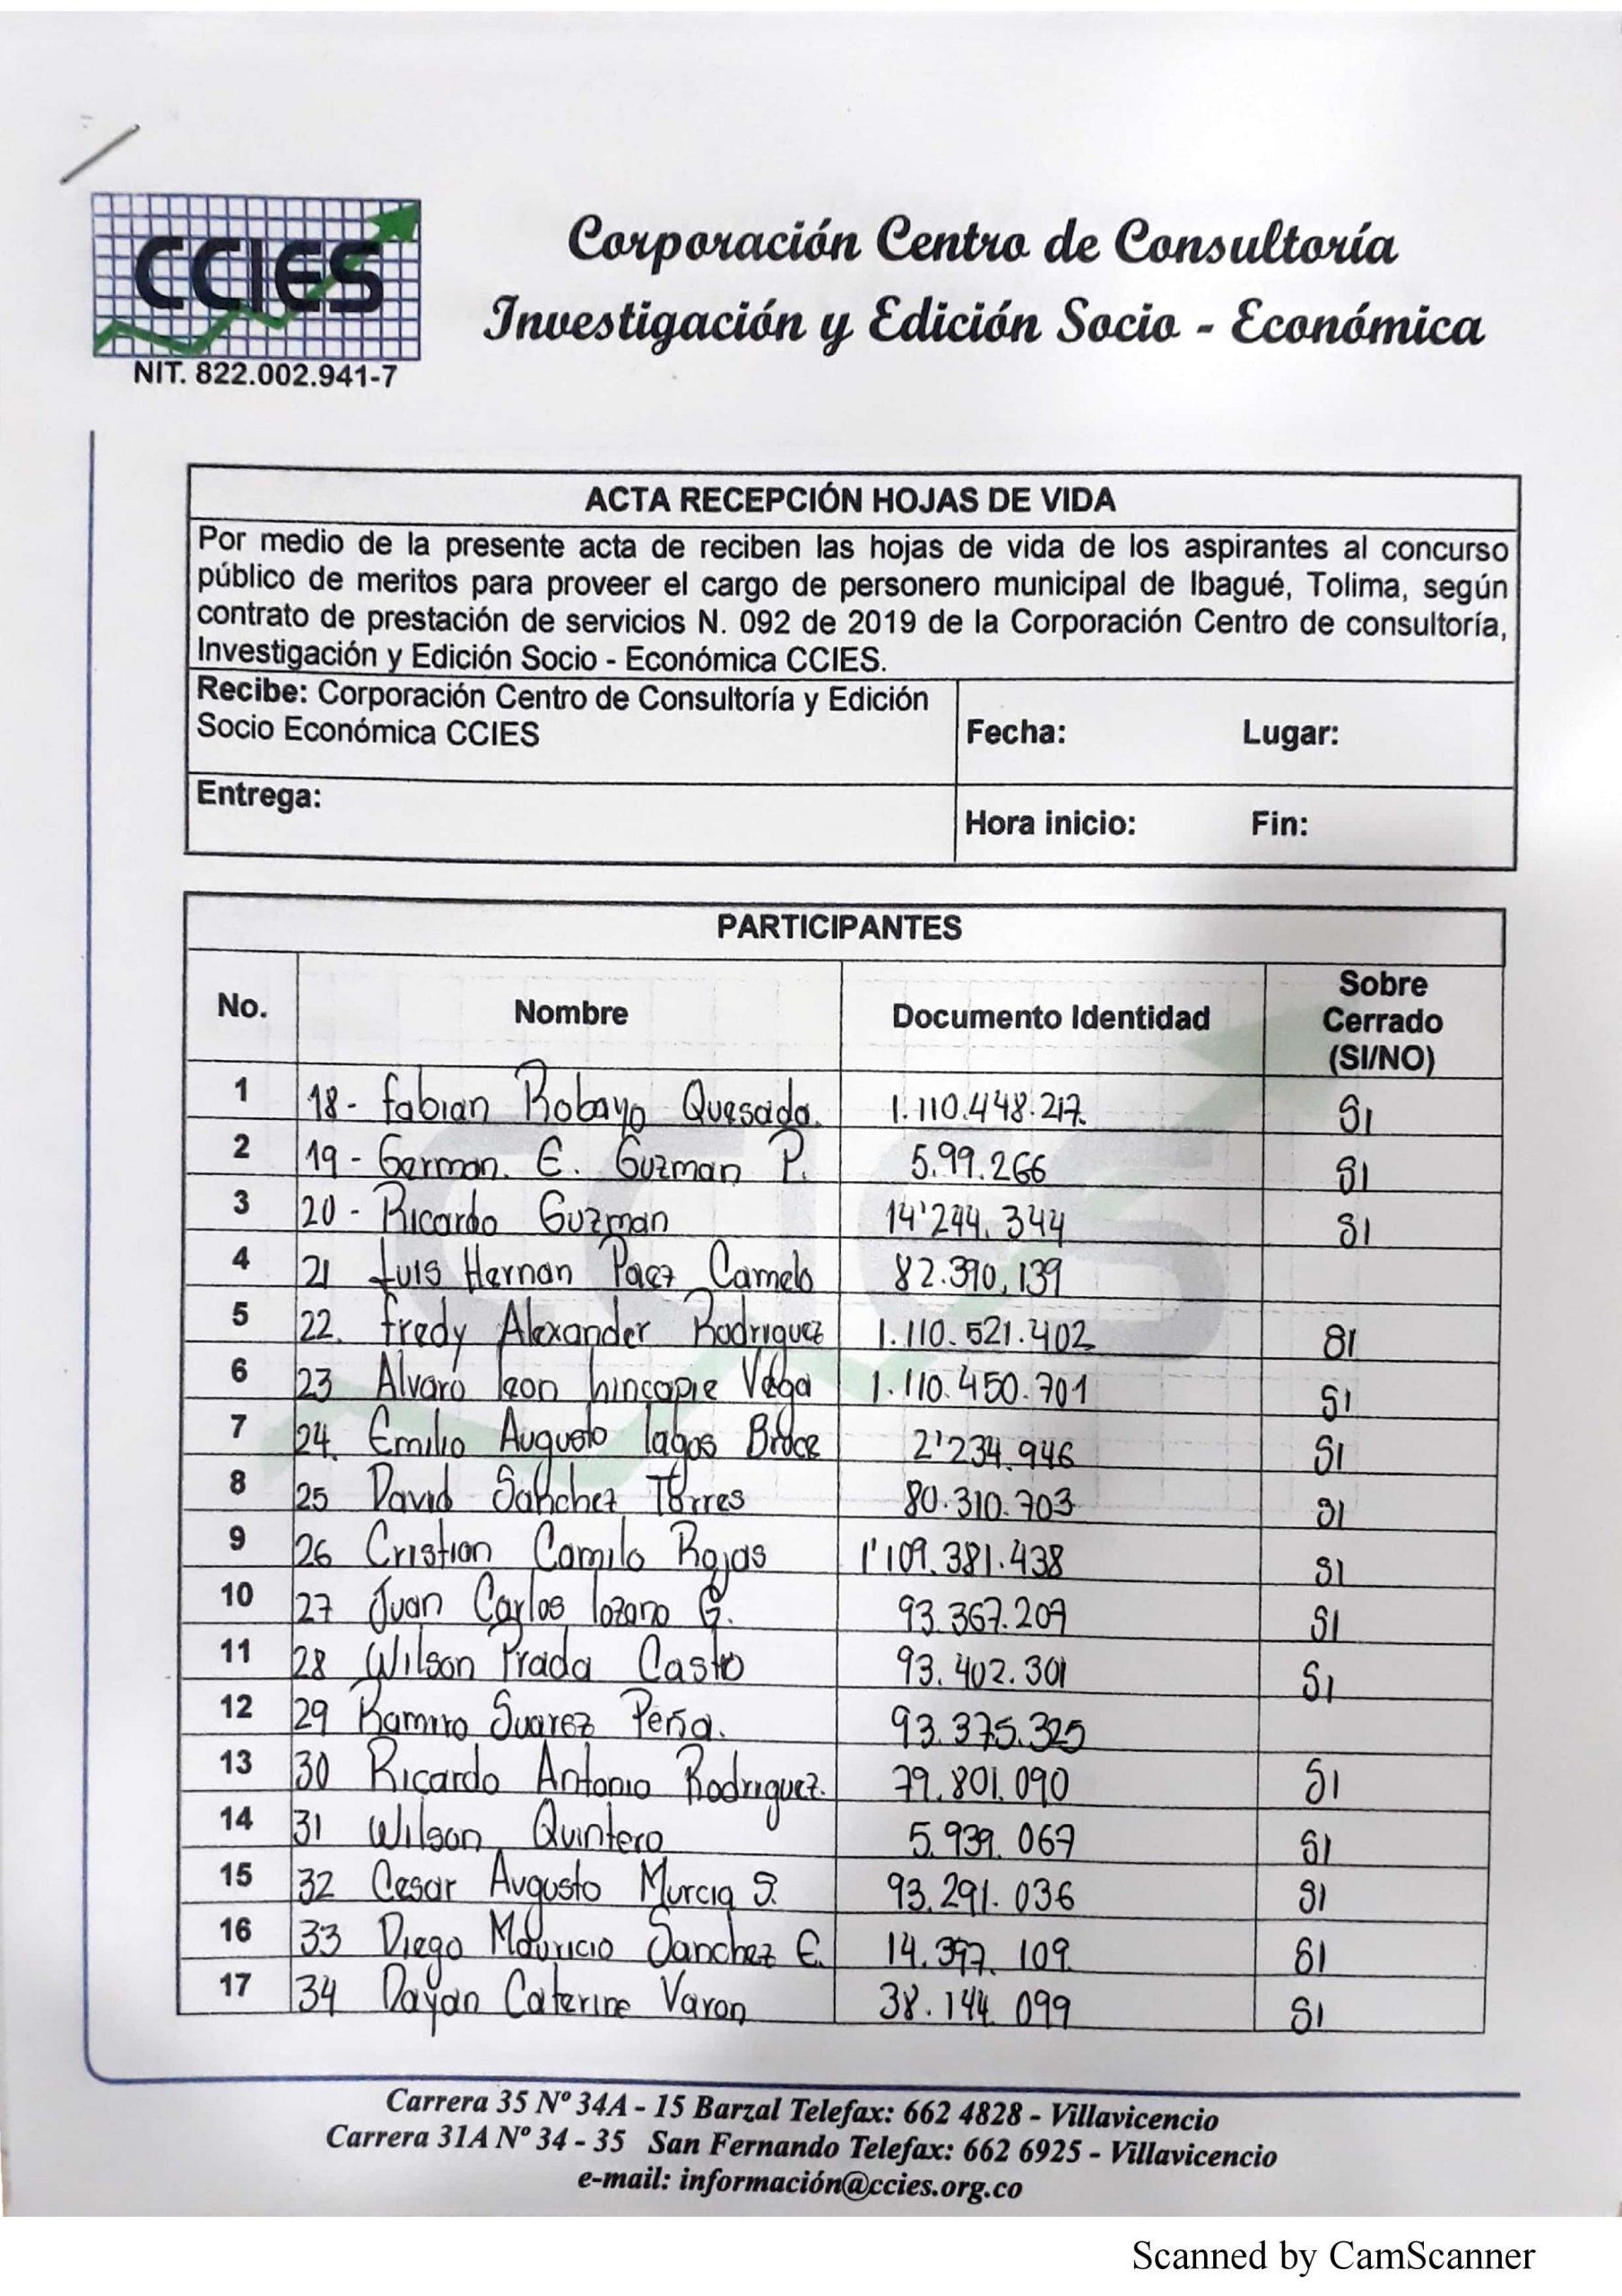 CCIES
NIT. 822.002.941-7
Corporación Centro de Consultoría
Investigación y Edición Socio - Económica
ACTA RECEPCIÓN HOJAS DE VIDA
Por medio de la presente acta de reciben las hojas de vida de los aspirantes al concurso
público de meritos para proveer el cargo de personero municipal de Ibagué, Tolima, según
contrato de prestación de servicios N. 092 de 2019 de la Corporación Centro de consultoría,
Investigación y Edición Socio - Económica CCIES.
Recibe: Corporación Centro de Consultoría y Edición
Socio Económica CCIES
Fecha: Lugar:
Entrega:
Hora inicio: Fin:
PARTICIPANTES
No. Nombre Documento Identidad Sobre Cerrado (SI/NO)
1 18- Fabian Robayo Quesada. 1.110.448.217. SI
2 19- German. E. Guzman P. 5.99.266 SI
3 20- Ricardo Guzman 14'244.344 SI
4 21 Luis Hernan Paez Camelo 82.390,139
5 22. Fredy Alexander Rodriguez 1.110.521.402 SI
6 23 Alvaro leon hincapie Vega 1.110.450.701 SI
7 24. Emilio Augusto lagos Bruce 2'234.946 SI
8 25 David Sanchez Torres 80.310.703 SI
9 26 Cristian Camilo Rojas 1'109.381.438 SI
10 27 Juan Carlos lozano G. 93.367.209 SI
11 28 Wilson Prada Castro 93.402.301 SI
12 29 Ramiro Suarez Peña. 93.375.325
13 30 Ricardo Antonio Rodriguez. 79.801.090 SI
14 31 Wilson Quintero 5.939.067 SI
15 32 Cesar Augusto Murcia S. 93.291.036 SI
16 33 Diego Mauricio Sanchez E. 14.397.109. SI
17 34 Dayan Caterine Varon 38.144.099 SI
Carrera 35 Nº 34A - 15 Barzal Telefax: 662 4828 - Villavicencio
Carrera 31A Nº 34 - 35 San Fernando Telefax: 662 6925 - Villavicencio
e-mail: información@ccies.org.co
Scanned by CamScanner